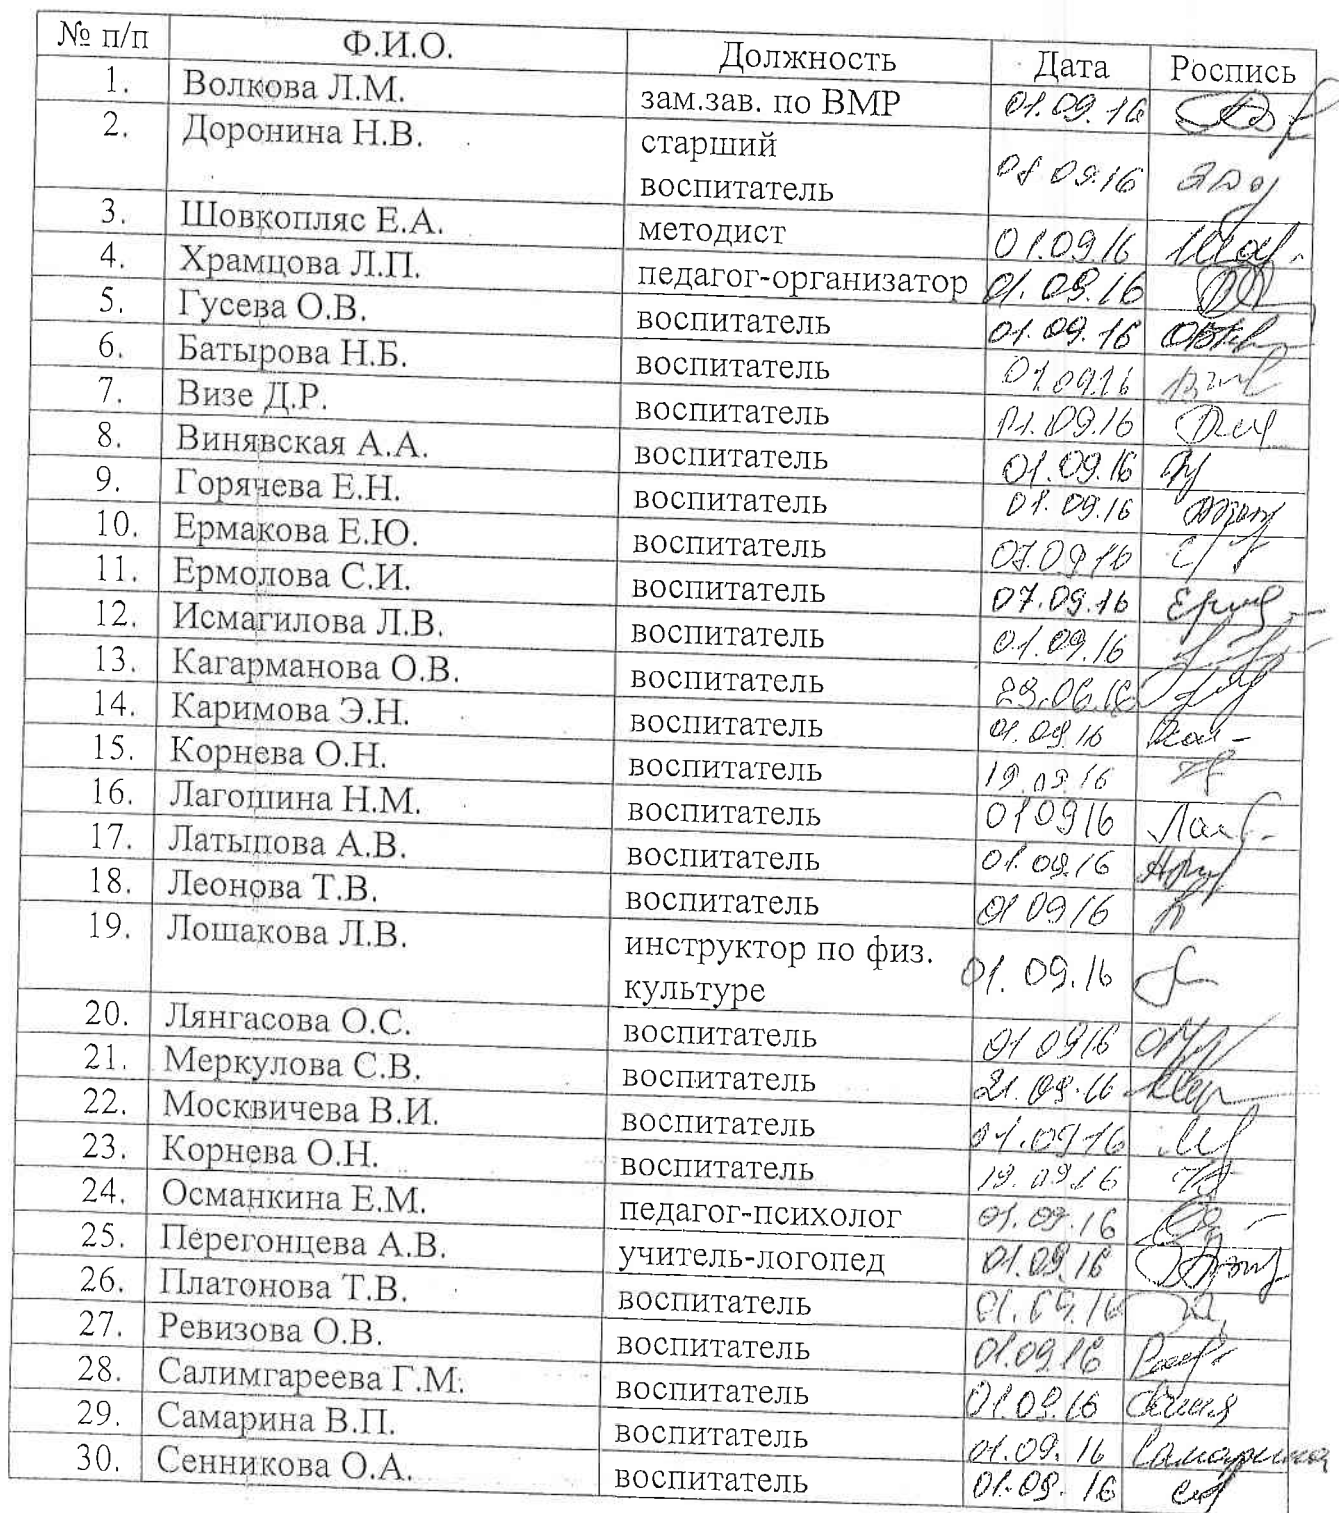 № п/п Ф.И.О. Должность Дата Роспись
1. Волкова Л.М. зам.зав. по ВМР 01.09.16
2. Доронина Н.В. старший
воспитатель 01 09.16
3. Шовкопляс Е.А. методист 01.09.16
4. Храмцова Л.П. педагог-организатор 01.09.16
5. Гусева О.В. воспитатель 01.09.16
6. Батырова Н.Б. воспитатель 01.09.16
7. Визе Д.Р. воспитатель 01.09.16
8. Винявская А.А. воспитатель 01.09.16
9. Горячева Е.Н. воспитатель 01.09.16
10. Ермакова Е.Ю. воспитатель 07.09.16
11. Ермолова С.И. воспитатель 07.09.16
12. Исмагилова Л.В. воспитатель 01.09.16
13. Кагарманова О.В. воспитатель
14. Каримова Э.Н. воспитатель 01.09.16
15. Корнева О.Н. воспитатель 19.09.16
16. Лагошина Н.М. воспитатель 01 09 16
17. Латыпова А.В. воспитатель 01.09.16
18. Леонова Т.В. воспитатель 01 09 16
19. Лошакова Л.В. инструктор по физ.
культуре 01.09.16
20. Лянгасова О.С. воспитатель 01 09 16
21. Меркулова С.В. воспитатель 21.09.16
22. Москвичева В.И. воспитатель 01.09.16
23. Корнева О.Н. воспитатель 19.09.16
24. Османкина Е.М. педагог-психолог 01.09.16
25. Перегонцева А.В. учитель-логопед 01.09.16
26. Платонова Т.В. воспитатель 01.09.16
27. Ревизова О.В. воспитатель 01.09.16
28. Салимгареева Г.М. воспитатель 01.09.16
29. Самарина В.П. воспитатель 01.09.16 Самарина
30. Сенникова О.А. воспитатель 01.09.16